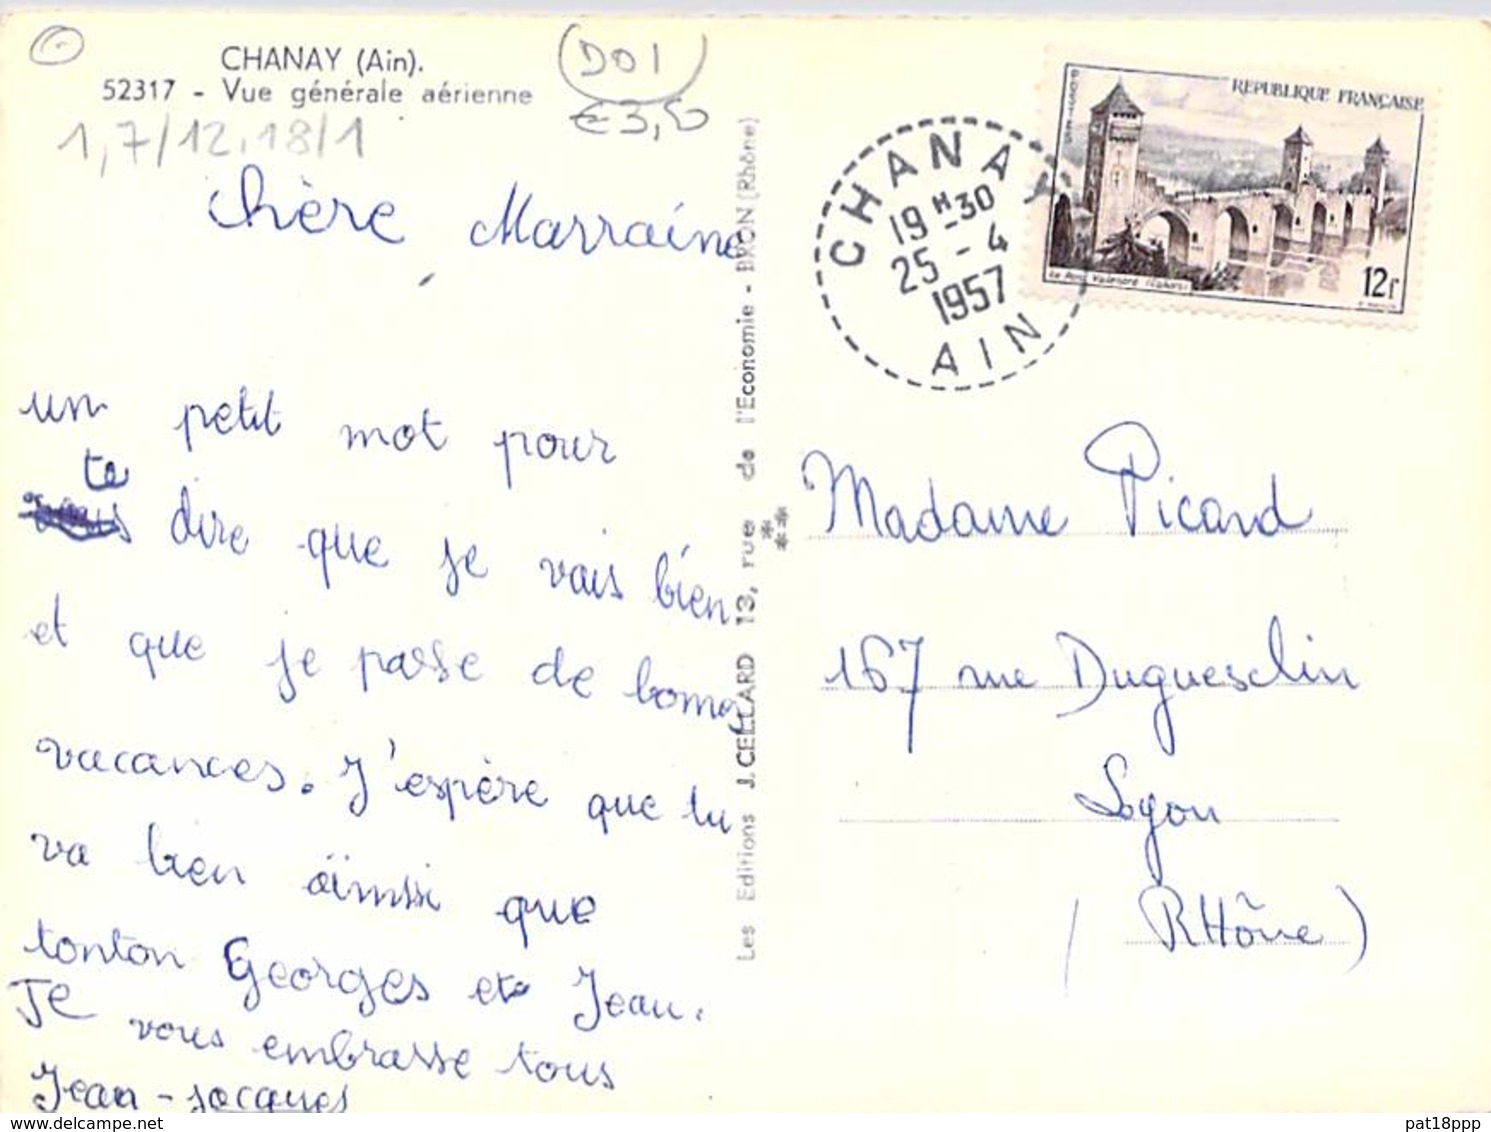 CHANAY (Ain).
52317 - Vue générale aérienne
(D01)
€3,50
1,7/12.18/1
Chère Marraine
,
un petit mot pour
te
dire que je vais bien
et que je passe de bonnes
vacances. J'espère que tu
va bien ainsi que
tonton Georges et Jean.
Je vous embrasse tous
Jean-Jacques
Les Editions J. CELLARD 13, rue de l'Economie - BRON (Rhône)
CHANAY
19H-30
25-4
1957
AIN
REPUBLIQUE FRANÇAISE
POSTES
Le Pont Valentré (Cahors)
12f
Madame Picard
167 rue Duguesclin
Lyon
(RHône)
www.delcampe.net
pat18ppp